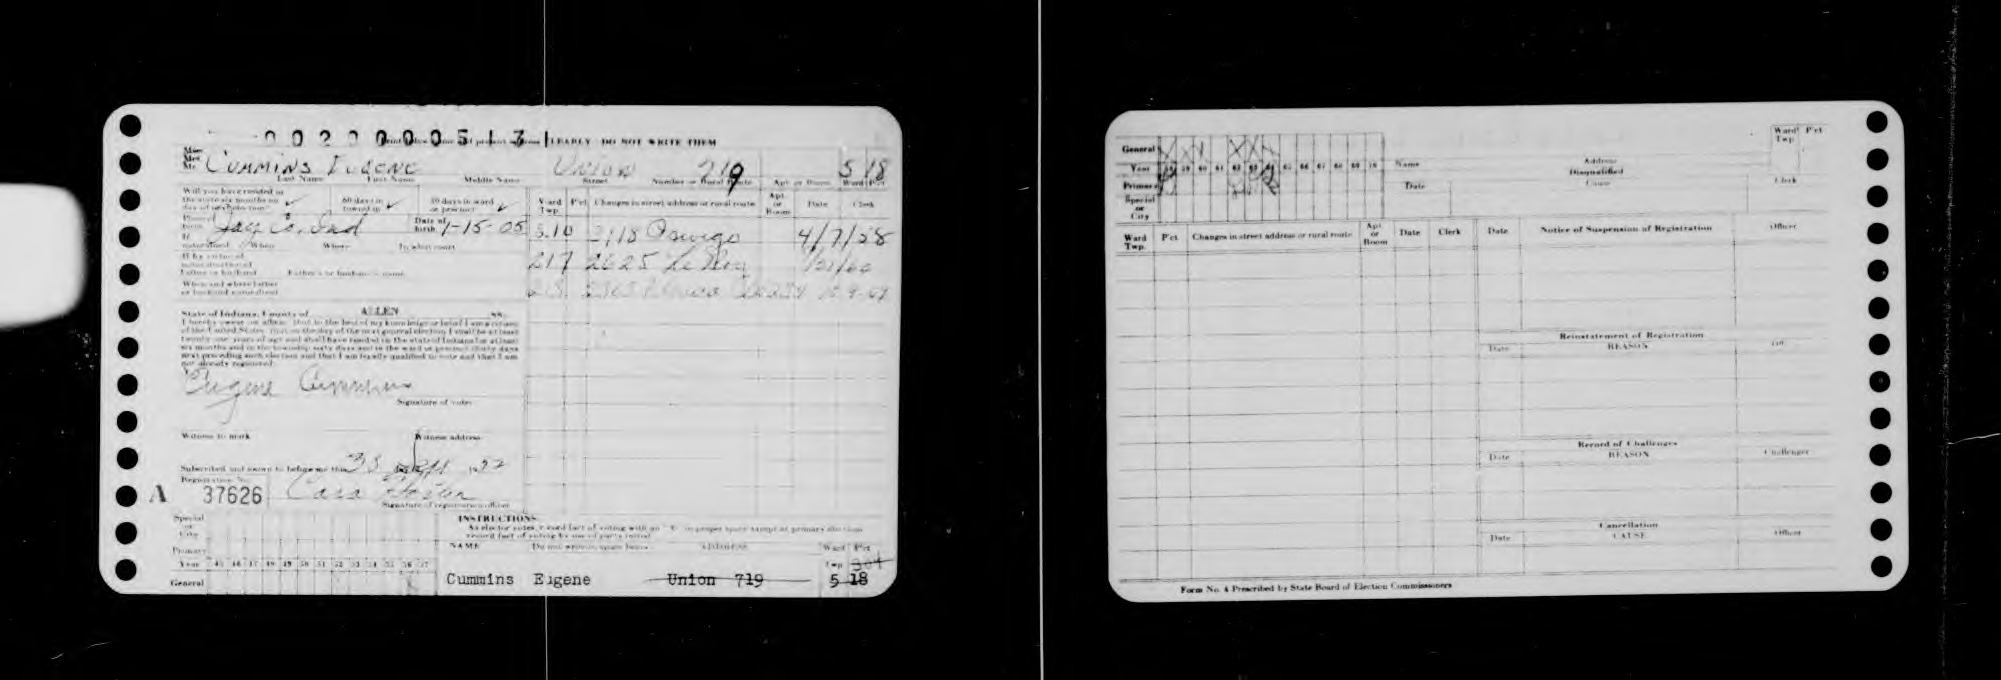 0020000513
CLEARLY DO NOT WRITE THEM
Miss
Mrs
Mr. CUMMINS EUGENE UNION 719 5 18
Last Name First Name Middle Name Street Number or Rural Route Apt. or Room Ward Pct
Will you have resided in the state six months on day of next election? ✓ 60 days in township ✓ 30 days in ward or precinct? ✓
Ward Twp. P'ct Changes in street address or rural route Apt. or Room Date Clerk
Place of birth Jay Co. Ind Date of birth 1-15-05
5 10 2118 Oswego 4/7/58
If naturalized When Where In what court
If by virtue of naturalization of father or husband Father's or husband's name
217 2625
When and where father or husband naturalized
State of Indiana, County of ALLEN SS:
I hereby swear or affirm that to the best of my knowledge or belief I am a citizen
of the United States that on the day of the next general election I shall be at least
twenty-one years of age and shall have resided in the state of Indiana for at least
six months and in the township sixty days and in the ward or precinct thirty days
next preceding such election and that I am legally qualified to vote and that I am
not already registered.
Eugene Cummins
Signature of voter
Witness to mark Witness address
Subscribed and sworn to before me this 1952
Registration No.
A 37626 Cara
Signature of registration officer
Special or City
INSTRUCTIONS
As elector votes, record fact of voting with an "X" in proper space except at primary election
record fact of voting by use of party initial
Primary
NAME Do not write in space below ADDRESS Ward Pct
Year 45 46 47 48 49 50 51 52 53 54 55 56 57 Twp. 304
General X Cummins Eugene Union 719 5 18
General
Year 58 59 60 61 62 63 64 65 66 67 68 69 70
Primary
Special or City
Name Address Ward Twp P'ct
Disqualified
Date Cause Clerk
Ward Twp. P'ct Changes in street address or rural route Apt. or Room Date Clerk Date Notice of Suspension of Registration Officer
Reinstatement of Registration
Date REASON
Record of Challenges
Date REASON Challenger
Cancellation
Date CAUSE Officer
Form No. 4 Prescribed by State Board of Election Commissioners